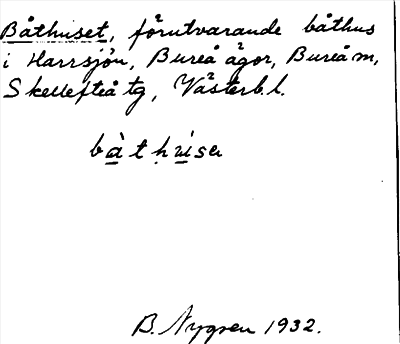 Båthuset, förutvarande båthus
i Harrsjön, Bureå ägor, Bureå m,
Skellefteå tg, Västerb. l.
bàtḥùsɐ
B. Nygren 1932.